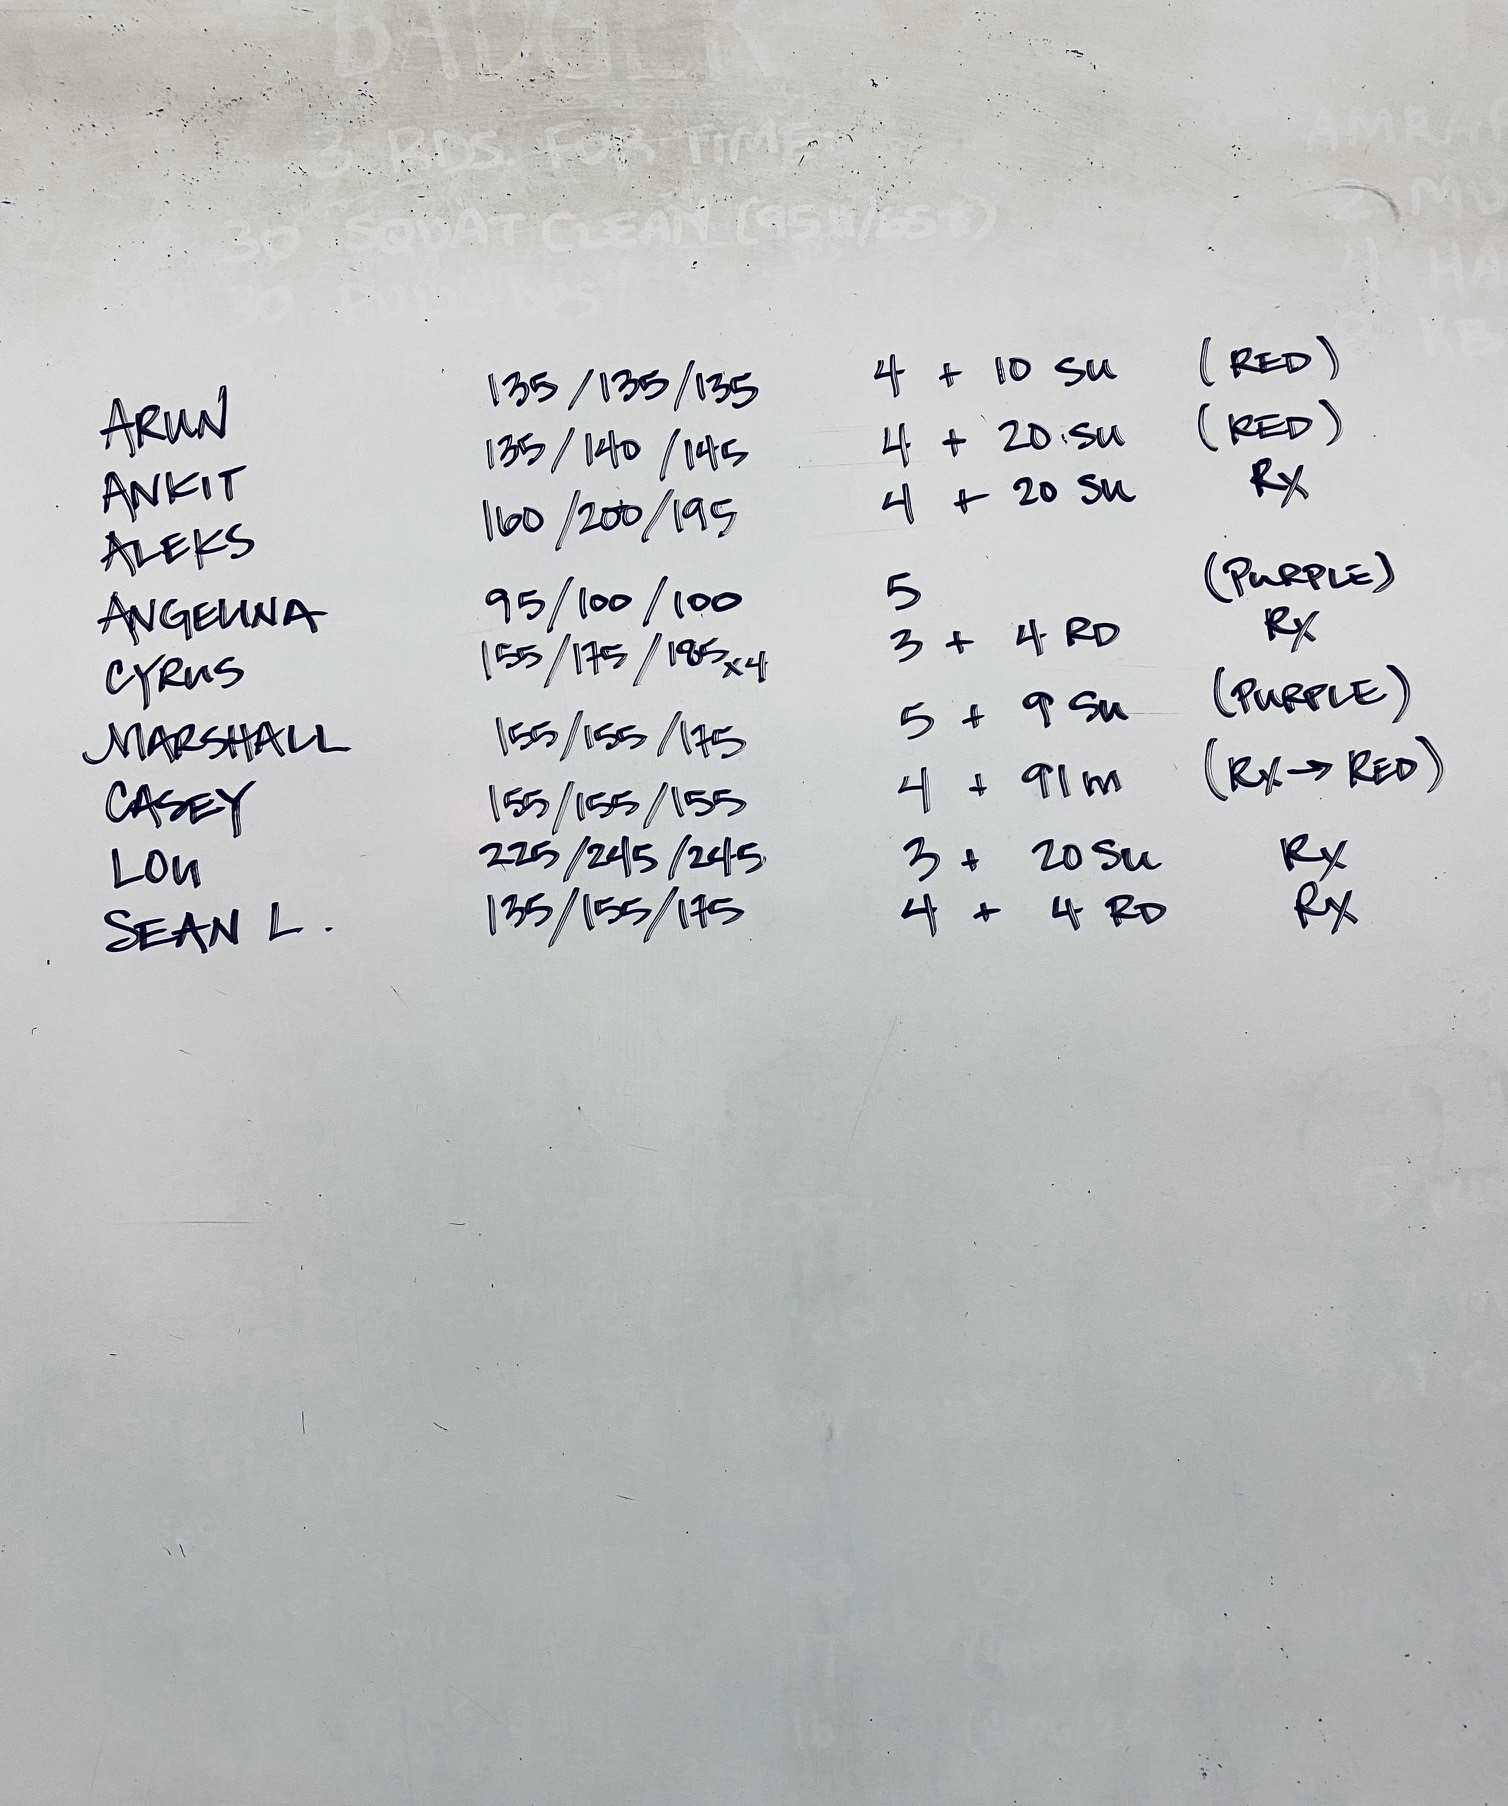 3 RDS. FOR TIME
30 SQUAT CLEAN (95#/65#)
30 PULL-UPS
AMRAP
2 MU
4 HA
8 KB
ARUN 135/135/135 4 + 10 SU (RED)
ANKIT 135/140/145 4 + 20 SU (RED)
ALEKS 160/200/195 4 + 20 SU Rx
ANGELINA 95/100/100 5 (PURPLE)
CYRUS 155/175/185x4 3 + 4 RD Rx
MARSHALL 155/155/175 5 + 9 SU (PURPLE)
CASEY 155/155/155 4 + 91m (Rx→RED)
LOU 225/245/245 3 + 20 SU Rx
SEAN L. 135/155/175 4 + 4 RD Rx